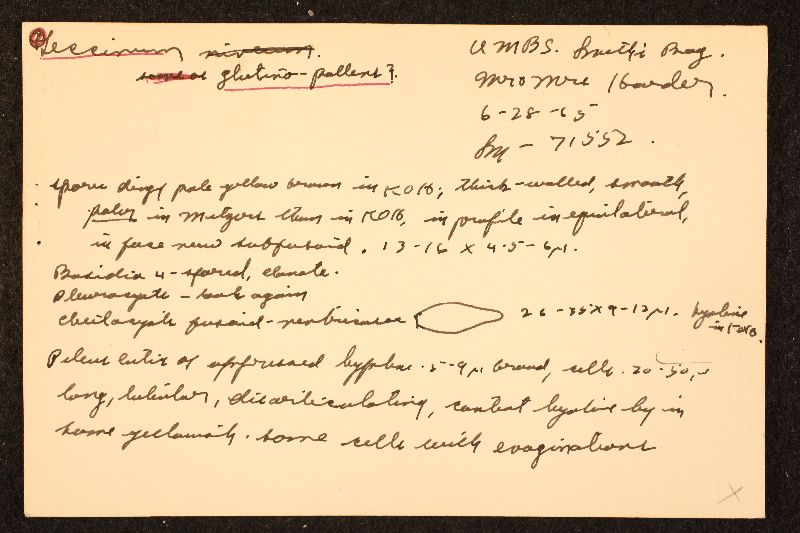 Leccinum niveum.
same as glutino-pallens?
UMBS. Smith's Bog.
Mrs Mrs Harder.
6-28-65
Sm - 71552.
spores dingy pale yellow brown in KOH; thick-walled, smooth,
paler in Melzers than in KOH, in profile inequilateral,
in face view subfusoid. 13-16 x 4.5-6µ.
Basidia 4-spored, clavate.
Pleurocysts - look again
Cheilocysts fusoid-ventricose 26-35x9-12µ. hyaline
in KOH.
Pileus cutis of appressed hyphae. 5-9µ broad, cells. 20-50µ
long, tubular, disarticulating, content hyaline in
some yellowish. some cells with evaginations
X